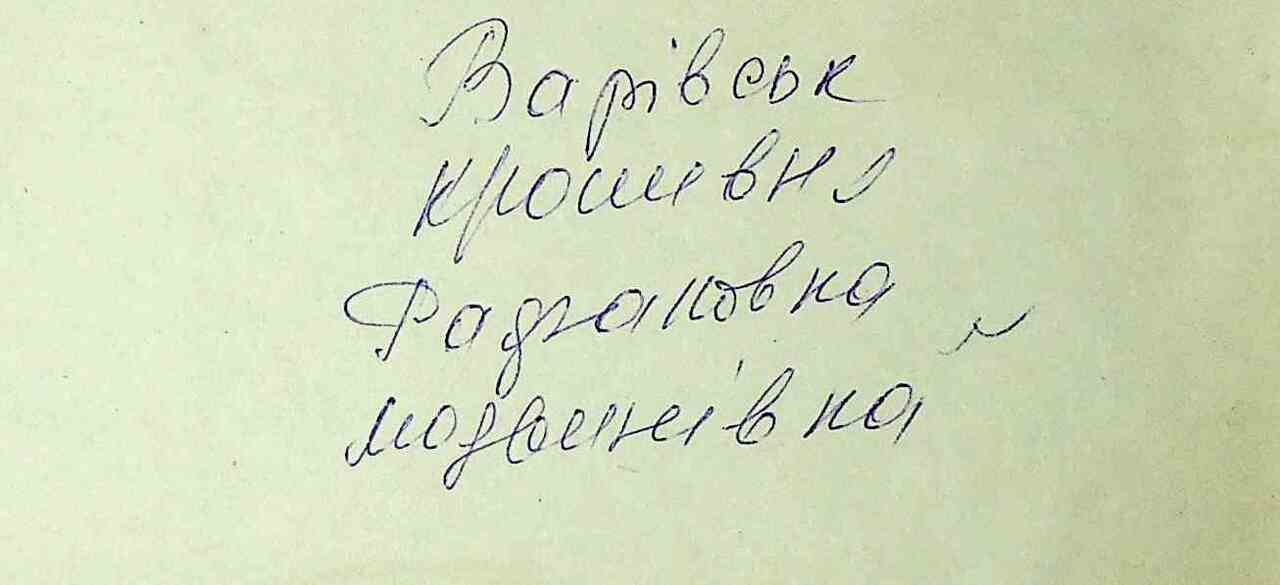 Варівськ
кропивня
Радзаковка
модвинівка